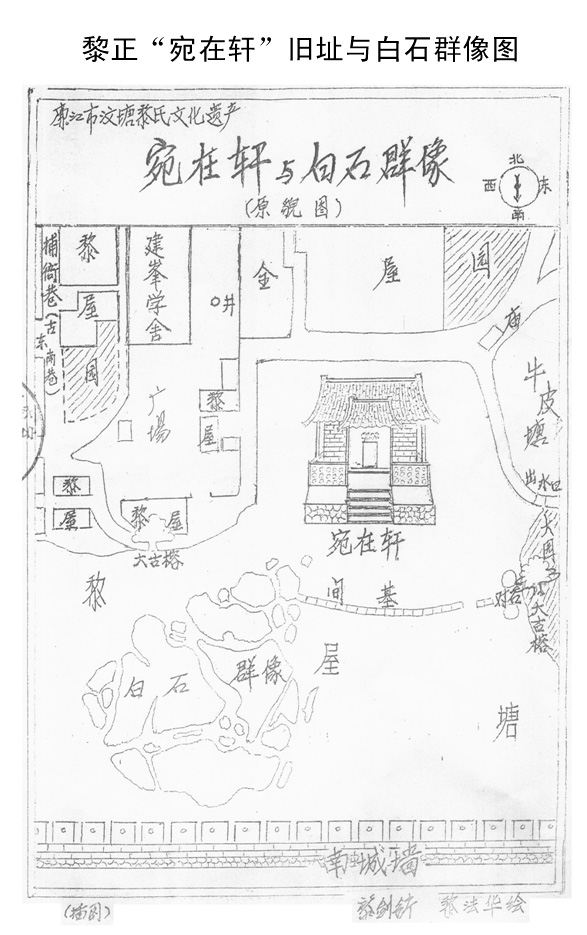 黎正“宛在轩”旧址与白石群像图
廉江市汶塘黎氏文化遗产
宛在轩与白石群像
(原貌图)
北
西 东
南
捕衙巷(古东南巷)
黎屋
园
建峯学舍
井
金屋
园
庙
牛皮塘
出水口
广場
黎屋
黎
屋
黎屋
大古榕
宛在轩
间基
大古榕
黎屋塘
白石群像
南城墙
(插图)
黎法华绘